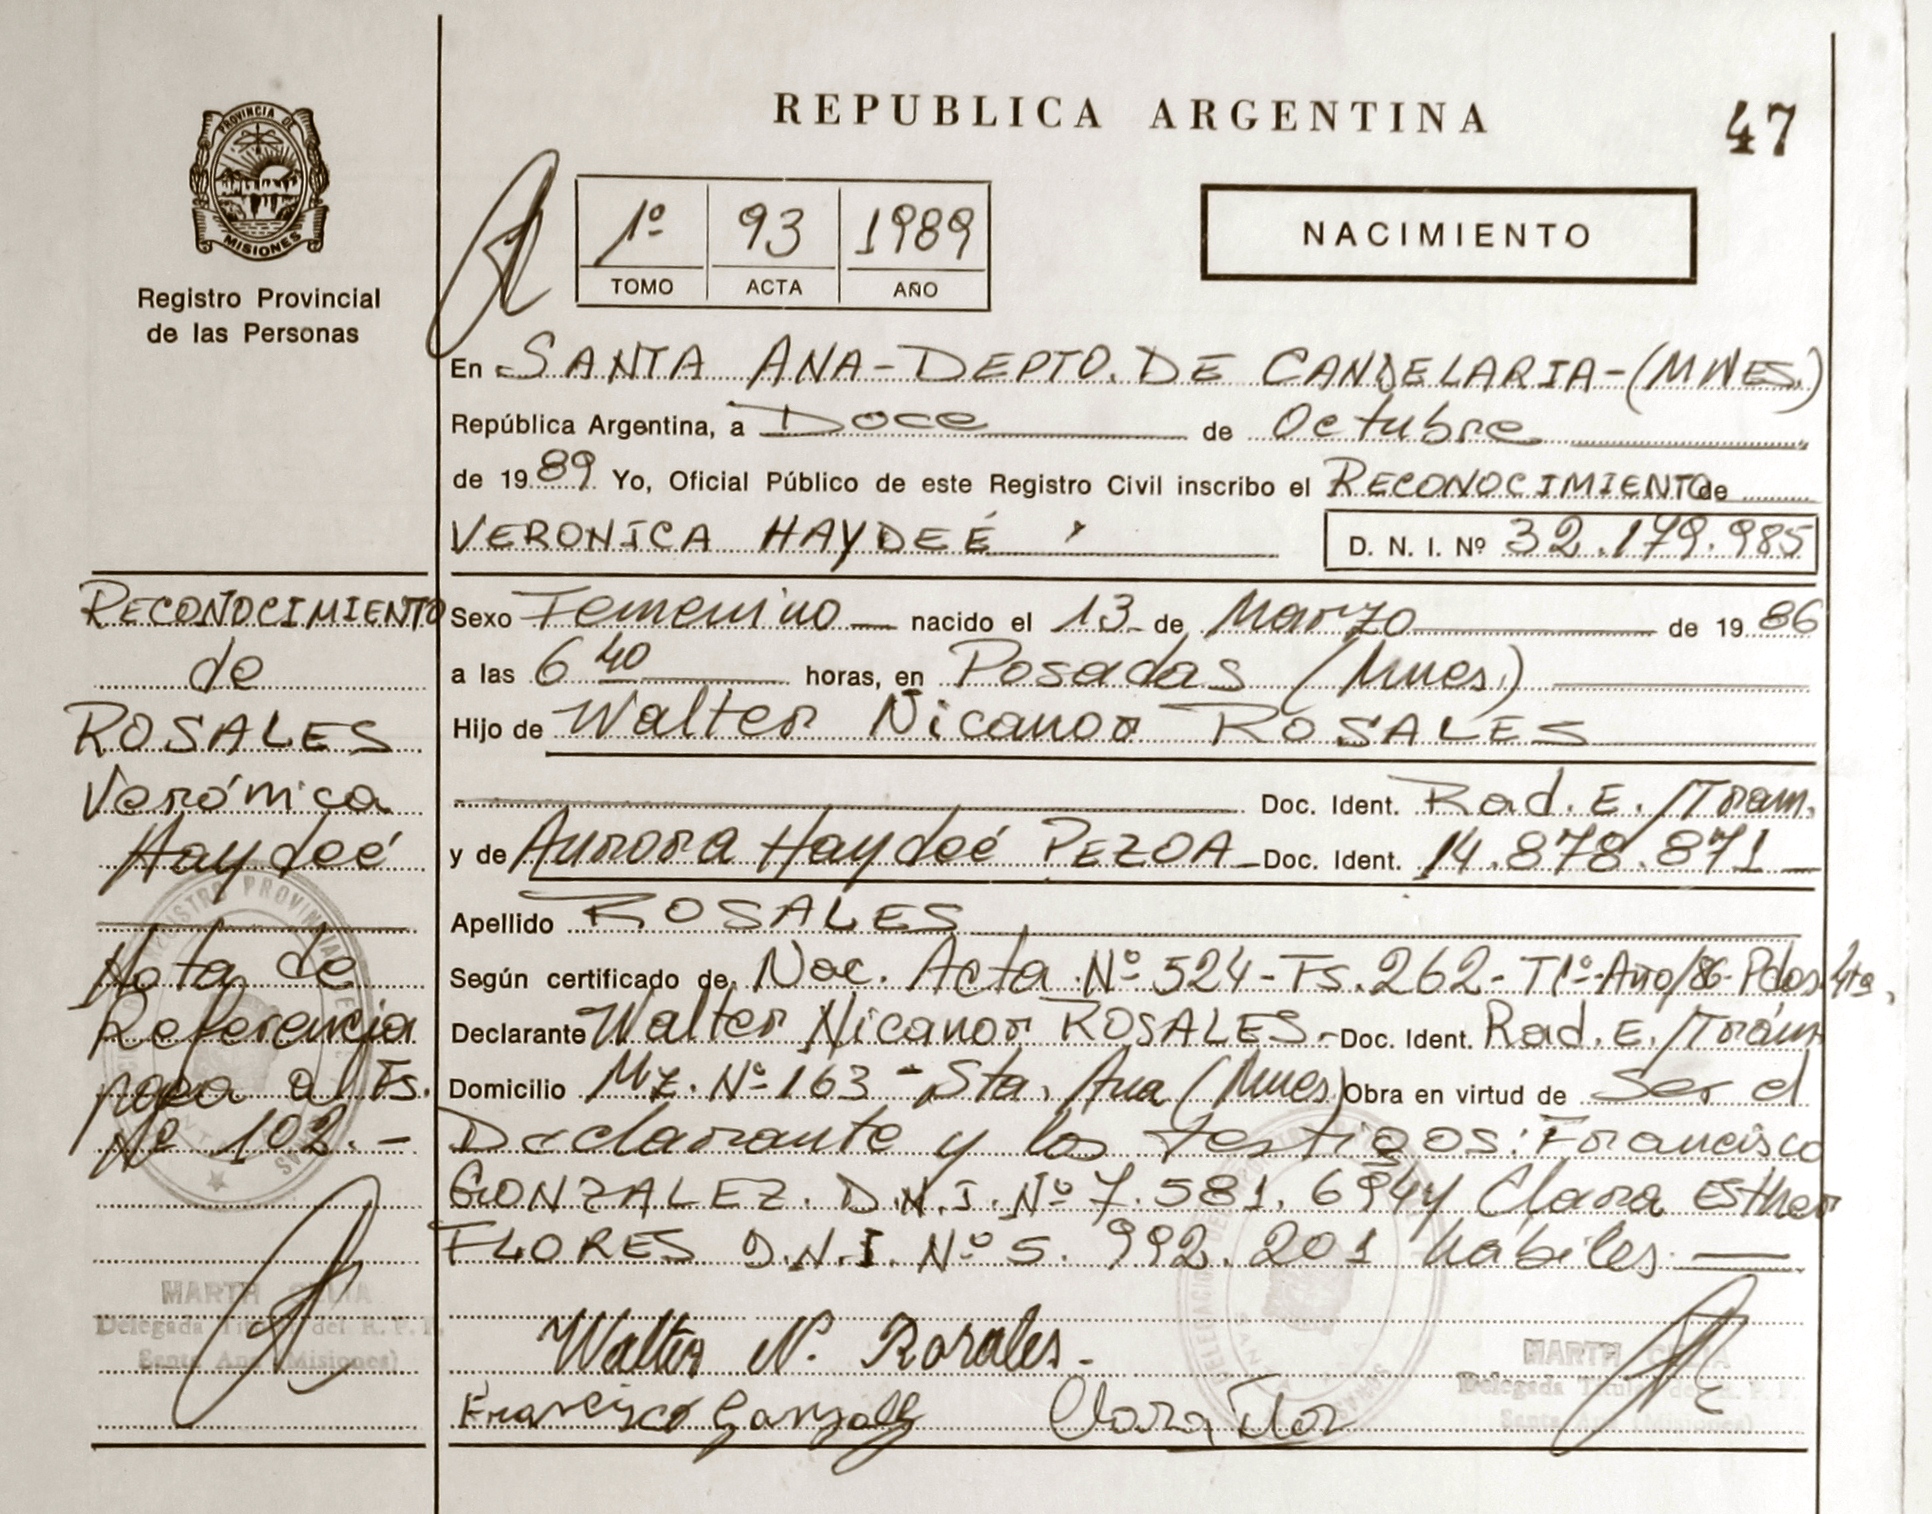 REPUBLICA ARGENTINA
47
PROVINCIA DE
MISIONES
Registro Provincial
de las Personas
1º 93 1989
TOMO ACTA AÑO
NACIMIENTO
En SANTA ANA-DEPTO. DE CANDELARIA-(MNES.)
República Argentina, a Doce de Octubre
de 1989 Yo, Oficial Público de este Registro Civil inscribo el RECONOCIMIENTO de
VERONICA HAYDEÉ D. N. I. Nº 32.179.985
Sexo Femenino nacido el 13 de Marzo de 1986
a las 6 40 horas, en Posadas (Mnes.)
Hijo de Walter Nicanor ROSALES
Doc. Ident. Rad. E. /Tram.
y de Aurora Haydeé PEZOA Doc. Ident. 14.878.871
Apellido ROSALES
Según certificado de Nac. Acta Nº 524-Fs. 262-T1º-Año/86-Pdas
Declarante Walter Nicanor ROSALES.- Doc. Ident. Rad. E. /Trám
Domicilio Mz. Nº 163 - Sta. Ana (Mnes) Obra en virtud de Ser el
Declarante y los testigos: Francisco
GONZALEZ. D.N.I. Nº 7.581.694 y Clara Esther
FLORES D.N.I. Nº 5.992.201 hábiles.
RECONOCIMIENTO
de
ROSALES
Verónica
Haydeé
Nota de
Referencia
pasa al Fs.
Nº 102.-
Walter N. Rosales.
Francisco Gonzalez
Clara Flor
MARTA CELIA
Delegada Titular del R. P. P.
Santa Ana (Misiones)
MARTA CELIA
Delegada Titular del R. P. P.
Santa Ana (Misiones)